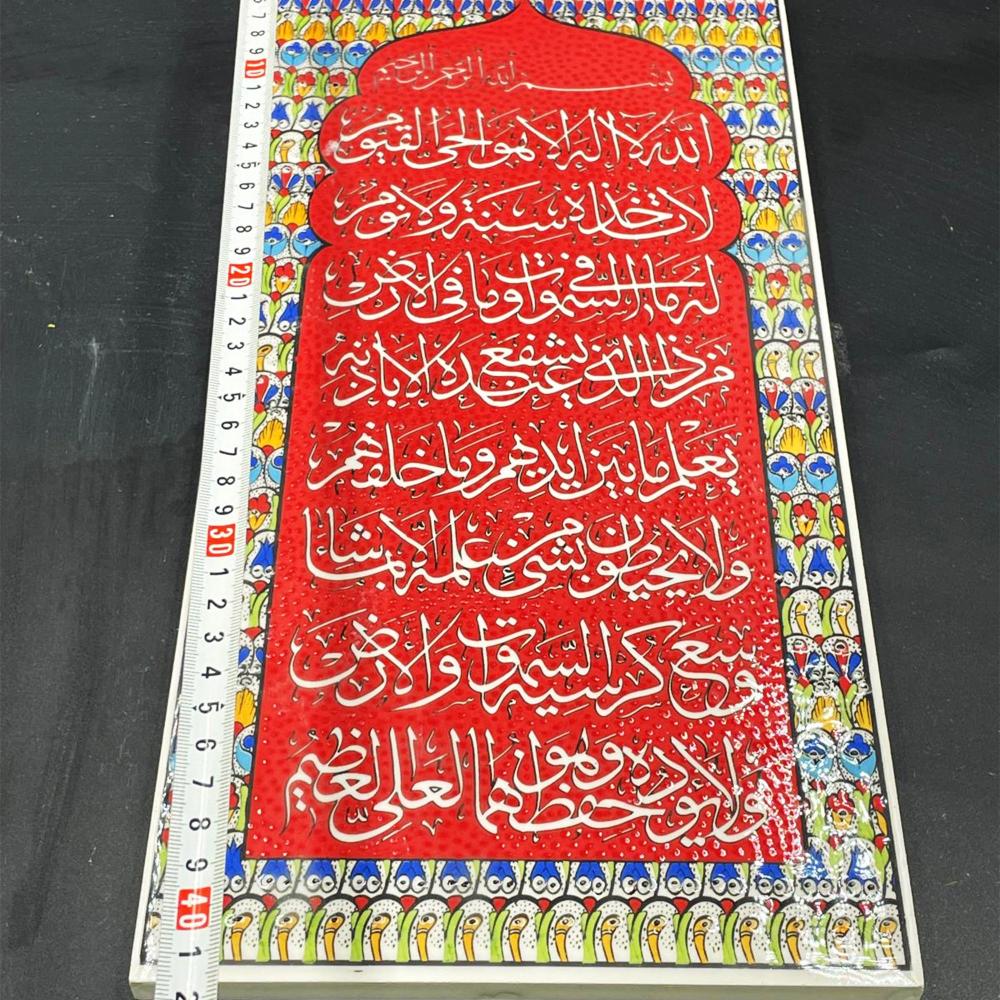 بسم الله الرحمن الرحيم
الله لا اله الا هو الحي القيوم
لا تاخذه سنة ولا نوم
له ما في السموات وما في الارض
من ذا الذي يشفع عنده الا باذنه
يعلم ما بين ايديهم وما خلفهم
ولا يحيطون بشئ من علمه الا بما شاء
وسع كرسيه السموات والارض
ولا يؤده حفظهما وهو العلي العظيم
6 7 8 9 10 1 2 3 4 5 6 7 8 9 20 1 2 3 4 5 6 7 8 9 30 1 2 3 4 5 6 7 8 9 40 1 2